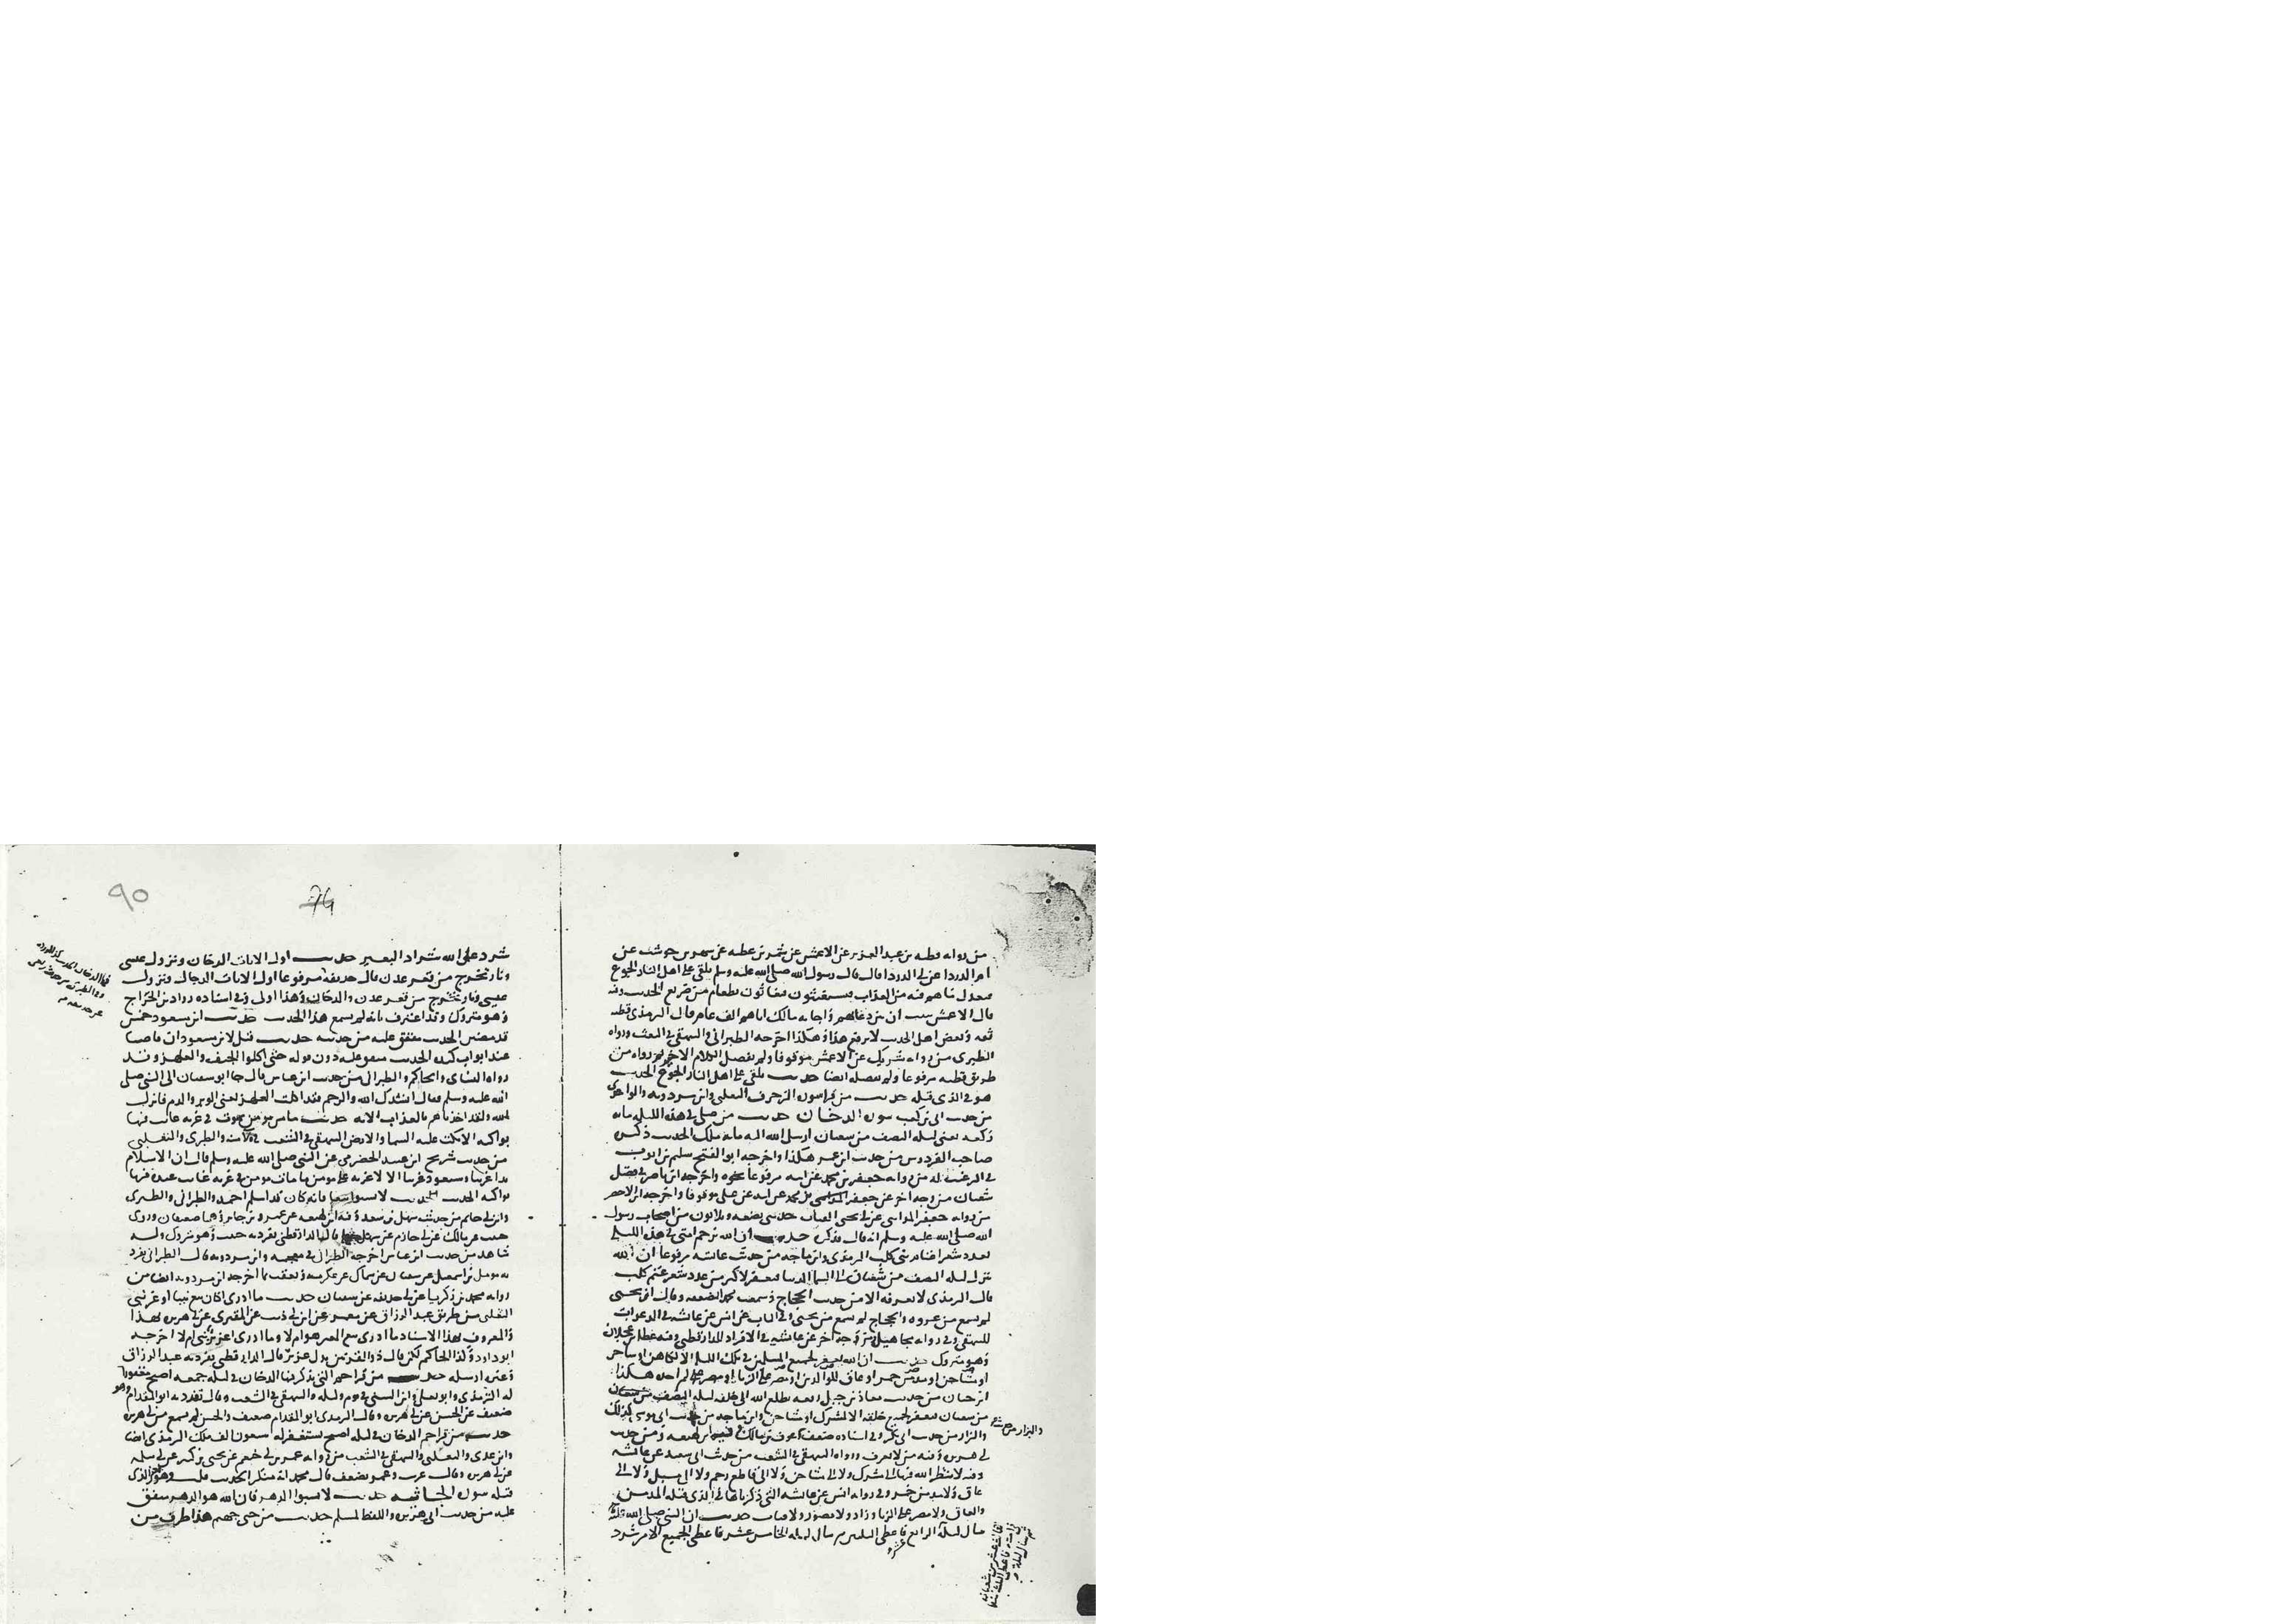 من رواية قطبه بن عبد العزيز عن الاعمش عن شمر بن عطيه عن شهر بن حوشب عن
ام الدردا عن ابي الدردا قال قال رسول الله صلى الله عليه وسلم يلقى على اهل النار الجوع
فيعدل ما هم فيه من العذاب فيستغيثون فيغاثون بطعام من ضريع الحديث وفيه
قال الاعمش نبيت ان بين دعائهم واجابه مالك اياهم الف عام قال الترمذي قطبه
ثقه وبعض اهل الحديث لا يرفع هذا وهكذا اخرجه الطبراني والبيهقي في البعث ورواه
الطبري من رواية شريك عن الاعمش موقوفا ولم يفصل الكلام الاخير ورواه من
طريق قطبه مرفوعا ولم يفصله ايضا حديث يلقى على اهل النار الجوع الحديث
هو في الذي قبله حديث من قرا سورة الزخرف الثعلبي وابن مردويه والواحدي
من حديث ابي بن كعب سورة الدخان حديث من صلى في هذه الليله مايه
ركعه يعني ليله النصف من شعبان ارسل الله اليه مايه ملك الحديث ذكره
صاحب الفردوس من حديث ابن عمر هكذا واخرجه ابو الفتح سليم بن ايوب
في الترغيب له من رواية جعفر بن محمد عن ابيه مرفوعا نحوه واخرجه ابن ناصر في فضل
شعبان من وجه اخر عن جعفر بن محمد عن ابيه عن علي موقوفا واخرجه ابن الاخضر
من رواية جعفر المدايني عن ابي يحيى العباب حدثني بضعه وثلاثون من اصحاب رسول
الله صلى الله عليه وسلم انه قال فذكره حديث ان الله يرحم امتي في هذه الليله
بعدد شعر اغنام بني كلب الترمذي وابن ماجه من حديث عائشه مرفوعا ان الله
ينزل ليله النصف من شعبان الى السما الدنيا فيغفر لاكثر من عدد شعر غنم كلب
قال الترمذي لا نعرفه الا من حديث الحجاج وسمعت محمدا يضعفه وقال ان يحيى
لم يسمع من عروه والحجاج لم يسمع من يحيى وفي الباب عن انس عن عائشه في الدعوات
للبيهقي وفي رواته مجاهيل ومن وجه اخر عن عائشه في الافراد للدارقطني وفيه عطا بن عجلان
وهو متروك حديث ان الله يغفر لجميع المسلمين في تلك الليله الا لكاهن او ساحر
او مشاحن او مدمن خمر او عاق للوالدين او مصر على الزنا لم اجده هكذا
ابن حبان من حديث معاذ بن جبل رفعه يطلع الله الى خلقه ليله النصف
من شعبان فيغفر لجميع خلقه الا لمشرك او مشاحن وابن ماجه من حديث ابي موسى كذلك
والبزار من حديث ابي بكر وفي اسناده ضعف وعوف بن مالك وفيه ابن لهيعه ومن حديث
ابي هريره وفيه من لا يعرف ورواه البيهقي في الشعب من حديث ابي سعيد عن عائشه
وفيه لا ينظر الله فيها الى مشرك ولا الى مشاحن ولا الى قاطع رحم ولا الى مسبل ولا الى
عاق ولا مدمن خمر وفي رواية انس عن عائشه التي ذكرناها في الذي قبله المدمن
والعاق ولا مصر على الزنا وزاد ولا مصور ولا قتات حديث ان النبي صلى الله عليه
سال ليلة الرابع عشر فاعطي الثلثين ثم سال ليله الخامس عشر فاعطي الجميع الا من شرد
90
74
شرد على الله شراد البعير حديث اول الايات الدخان ونزول عيسى
ونار تخرج من قعر عدن قال حذيفه مرفوعا اول الايات الدجال ونزول
عيسى ونار تخرج من قعر عدن والدخان وهذا اولى وفي اسناده رواد بن الجراح
وهو متروك وقد اعترف بانه لم يسمع هذا الحديث حديث ابن مسعود خمس
قد مضين الحديث متفق عليه من حديثه حديث قيل لابن مسعود ان قاصا
عند ابواب كنده الحديث متفق عليه دون قوله حتى اكلوا الجيف والعلهز وقد
رواه النسائي والحاكم والطبراني من حديث ابن عباس قال جا ابو سفيان الى النبي صلى
الله عليه وسلم فقال انشدك الله والرحم فقد اكلنا العلهز يعني الوبر والدم فانزل
الله ولقد اخذناهم بالعذاب الاية حديث ما من مومن يموت في غربه غابت فيها
بواكيه الا بكت عليه السما والارض البيهقي في الشعب والطبري والثعلبي
من حديث شريح ابن عبيد الحضرمي عن النبي صلى الله عليه وسلم قال ان الاسلام
بدا غريبا وسيعود غريبا الا لا غربه على مومن ما مات مومن في غربه غابت عنه فيها
بواكيه الحديث حديث لا تسبوا تبعا فانه كان قد اسلم احمد والطبراني والطبري
وابن ابي حاتم من حديث سهل بن سعد وفيه ابن لهيعه عن عمرو بن جابر وهما ضعيفان وروى
حبيب عن مالك عن ابي حازم عن سهل قال الدارقطني تفرد به حبيب وهو متروك وله
شاهد من حديث ابن عباس اخرجه الطبراني في معجمه وابن مردويه قال الطبراني تفرد
به مومل بن اسمعيل عن سفيان عن سماك عن عكرمه وتعقب بما اخرجه ابن مردويه ايضا من
رواية محمد بن زكريا عن ابي حذيفه عن سفيان حديث ما ادري اكان تبع نبيا او غير نبي
الثعلبي من طريق عبد الرزاق عن معمر عن ابن ابي ذيب عن المقبري عن ابي هريره بهذا
والمعروف بهذا الاسناد ما ادري تبع العين هو ام لا وما ادري اعزير نبي ام لا اخرجه
ابو داود وكذا الحاكم لكن قال ذو القرنين بدل عزير قال الدارقطني تفرد به عبد الرزاق
وغيره ارسله حديث من قرا حم التي يذكر فيها الدخان في ليله جمعه اصبح مغفورا
له الترمذي وابو يعلى وابن السني في يوم وليله والبيهقي في الشعب وقال تفرد به ابو المقدام وهو
ضعيف عن الحسن عن ابي هريره وقال الترمذي ابو المقدام ضعيف والحسن لم يسمع من ابي هريره
حديث من قرا حم الدخان في ليله اصبح يستغفر له سبعون الف ملك الترمذي ايضا
وابن عدي والثعلبي والبيهقي في الشعب من رواية عمر بن ابي خثعم عن يحيى بن كثير عن ابي سلمه
عن ابي هريره وقال غريب وعمر يضعف قال محمد انه منكر الحديث قلت وهو الذي
قبله سورة الجاثيه حديث لا تسبوا الدهر فان الله هو الدهر متفق
عليه من حديث ابي هريره واللفظ لمسلم حديث من جثى جهنم هذا طرف من